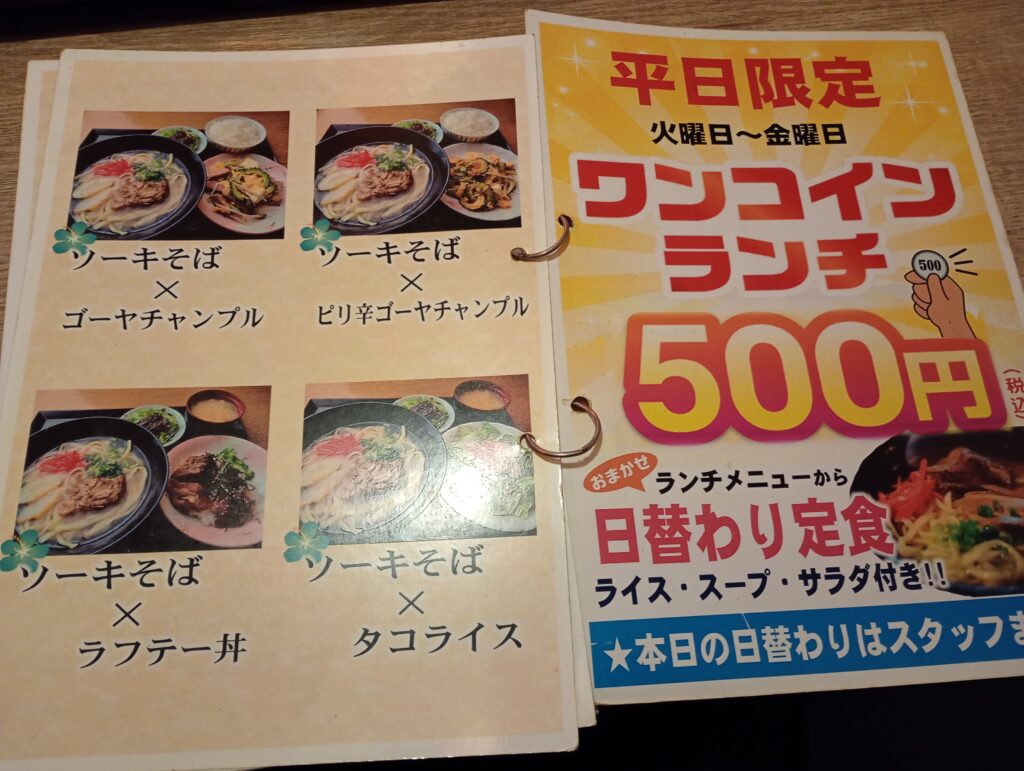 ソーキそば
×
ゴーヤチャンプル
ソーキそば
×
ピリ辛ゴーヤチャンプル
ソーキそば
×
ラフテー丼
ソーキそば
×
タコライス
平日限定
火曜日～金曜日
ワンコイン
ランチ
500
500円
(税込)
おまかせ
ランチメニューから
日替わり定食
ライス・スープ・サラダ付き!!
★本日の日替わりはスタッフま